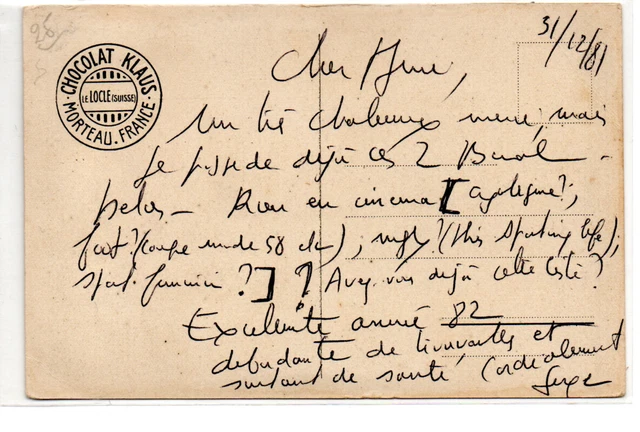 31/12/81
CHOCOLAT KLAUS
LE LOCLE (SUISSE)
MORTEAU. FRANCE
Cher
Un très chaleureux merci, mais
je possède déjà ces 2
hélas - Rien en cinéma [cyclisme?;
foot? (coupe monde 58 etc), rugby? (this sporting life);
sport féminin ?] ? Avez-vous déjà cette liste?
Excellente année 82
débordante de trouvailles et
surtout de santé, Cordialement
Serge